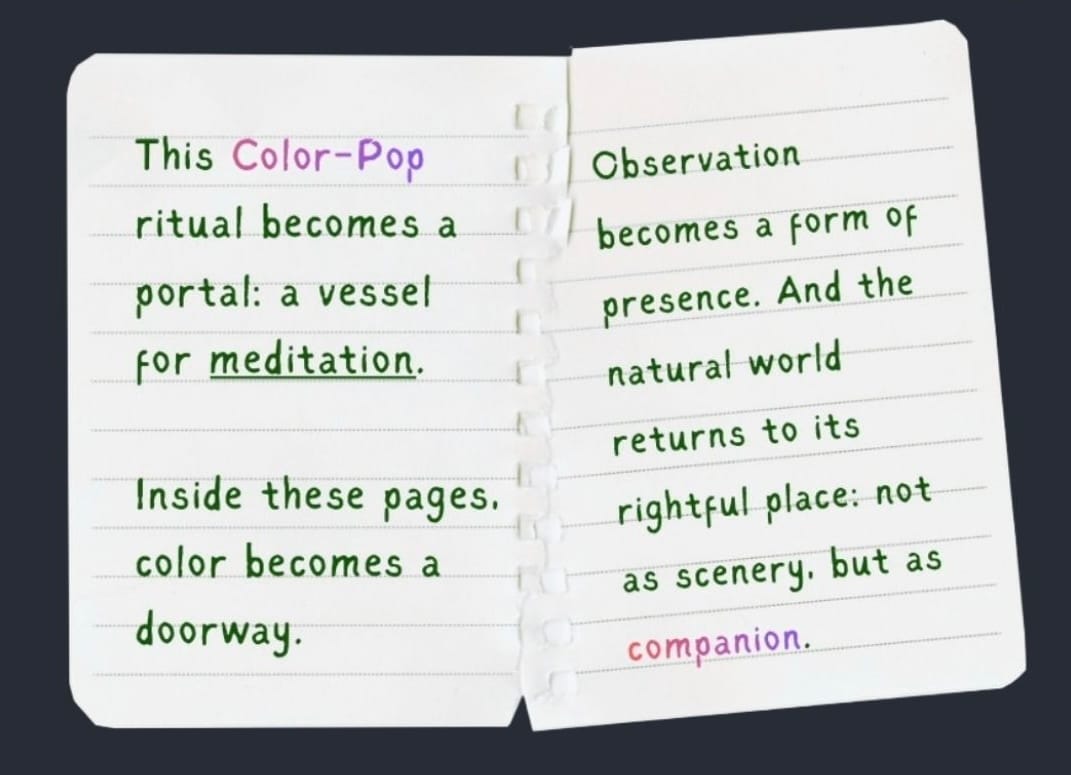 This Color-Pop
ritual becomes a
portal: a vessel
for meditation.
Inside these pages,
color becomes a
doorway.
Observation
becomes a form of
presence. And the
natural world
returns to its
rightful place: not
as scenery, but as
companion.